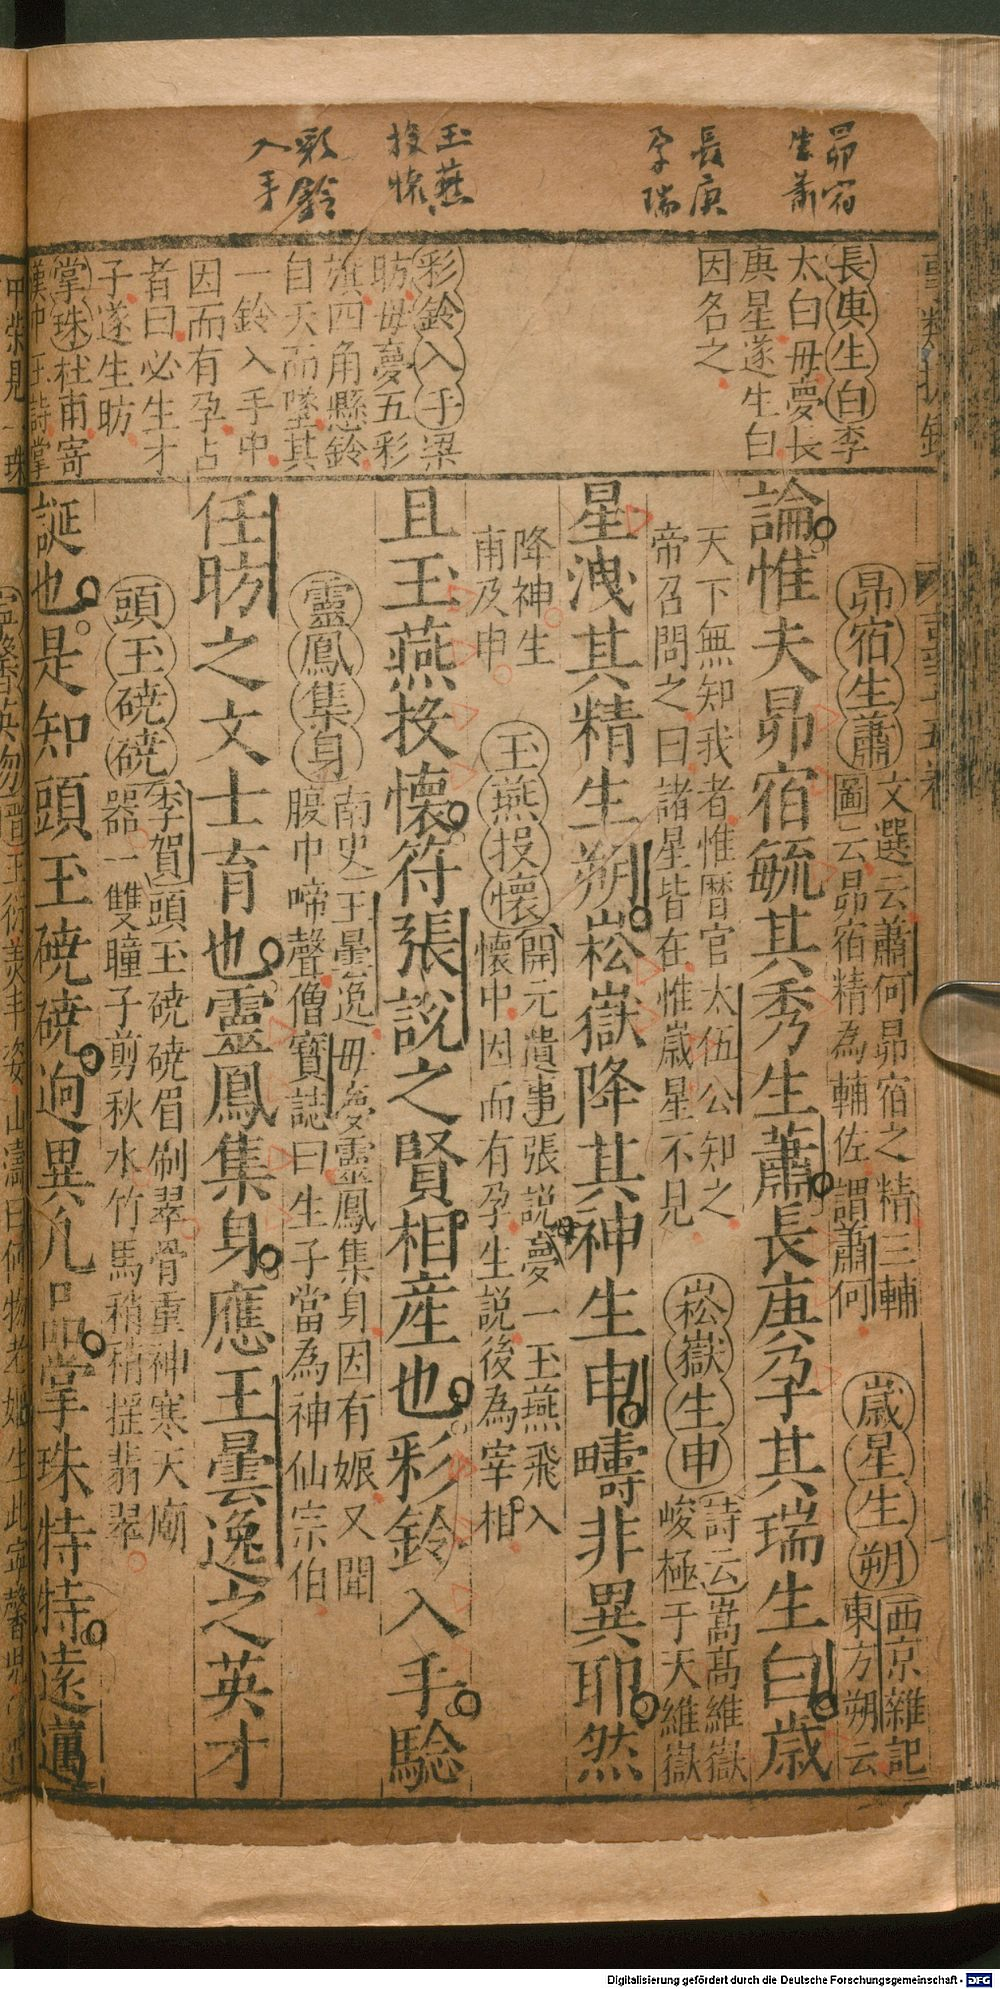 昴宿
生蕭
長庚
孕瑞
玉燕
投懷
彩鈴
入手
長庚生白李
太白母夢長
庚星遂生白
因名之
彩鈴入手梁
昉母夢五彩
旗四角懸鈴
自天而墜其
一鈴入手中
因而有孕占
者曰必生才
子遂生昉
掌珠杜甫寄
漢中王詩掌
中榮見一珠
昴宿生蕭
文選云蕭何昴宿之精三輔
圖云昴宿精為輔佐謂蕭何
歲星生朔
西京雜記
東方朔云
論惟夫昴宿毓其秀生蕭長庚孕其瑞生白歲
天下無知我者惟曆官太伍公知之
帝召問之曰諸星皆在惟歲星不見
崧嶽生申
詩云嵩高維嶽
峻極于天維嶽
星洩其精生朔崧嶽降其神生申疇非異耶然
降神生
甫及申
玉燕投懷
開元遺事張説夢一玉燕飛入
懷中因而有孕生説後為宰相
且玉燕投懷符張説之賢相産也彩鈴入手騐
靈鳳集身
南史王曇逸母夢靈鳳集身因有娠又聞
腹中啼聲僧寶誌曰生子當為神仙宗伯
任昉之文士育也靈鳳集身應王曇逸之英才
頭玉磽磽
李賀頭玉磽磽眉刷翠骨重神寒天廟
器一雙瞳子剪秋水竹馬稍稍揺翡翠
誕也是知頭玉磽磽逈異凡品掌珠特特遠邁
寧馨英物晋王衍美丰姿山濤曰何物老嫗生此寧馨児
Digitalisierung gefördert durch die Deutsche Forschungsgemeinschaft - DFG